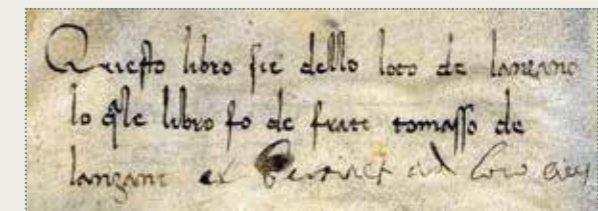 Questo libro sie dello loco de lanzano
lo qle libro fo de frate tomasso de
lanzano et pertinet ad